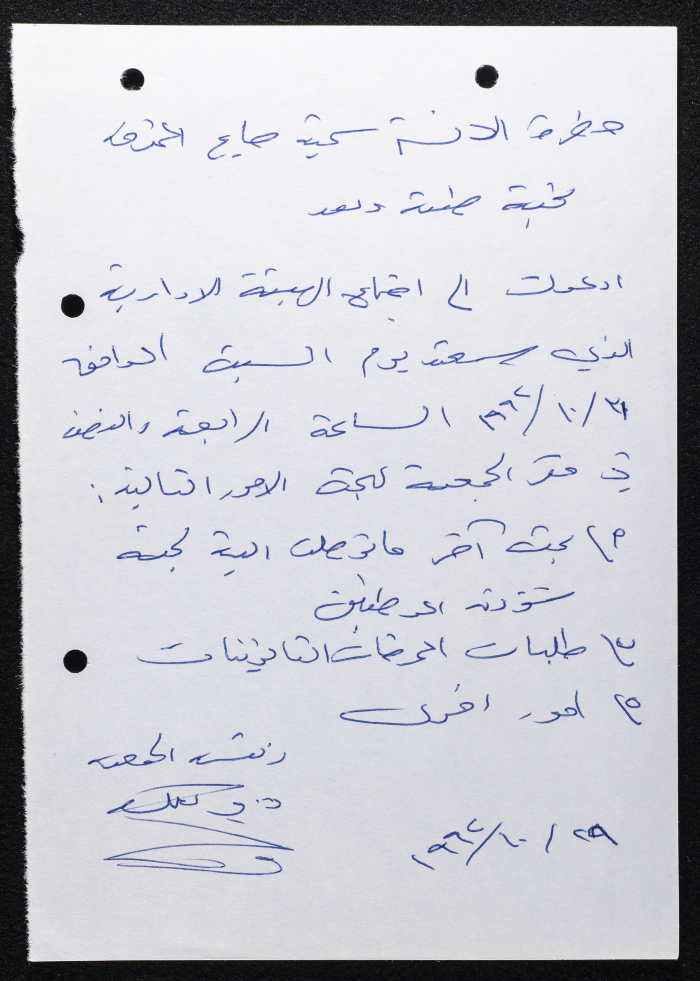 حضرة الانسة سمية صايغ المحترمه
تحية طيبة وبعد
ادعوك الى اجتماع الهيئة الادارية
الذي سيعقد يوم السبت الموافق
٣١/١٠/١٩٦٤ الساعة الرابعة والنصف
في مقر الجمعية لبحث الامور التالية :
١) بحث آخر ما توصلت الية لجنة
شؤون الموظفين
٢) طلبات الممرضات القانونيات
٣) امور اخرى
رئيس الجمعية
٢٩/١٠/١٩٦٤